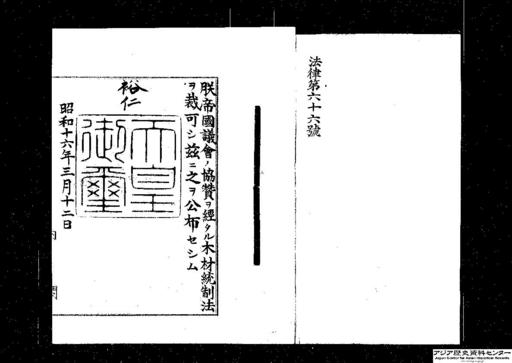 法律第六十六號
朕帝國議會ノ協贊ヲ經タル木材統制法
ヲ裁可シ茲ニ之ヲ公布セシム
裕仁
天皇
御璽
昭和十六年三月十二日
内
閣
アジア歴史資料センター
Japan Center for Asian Historical Records